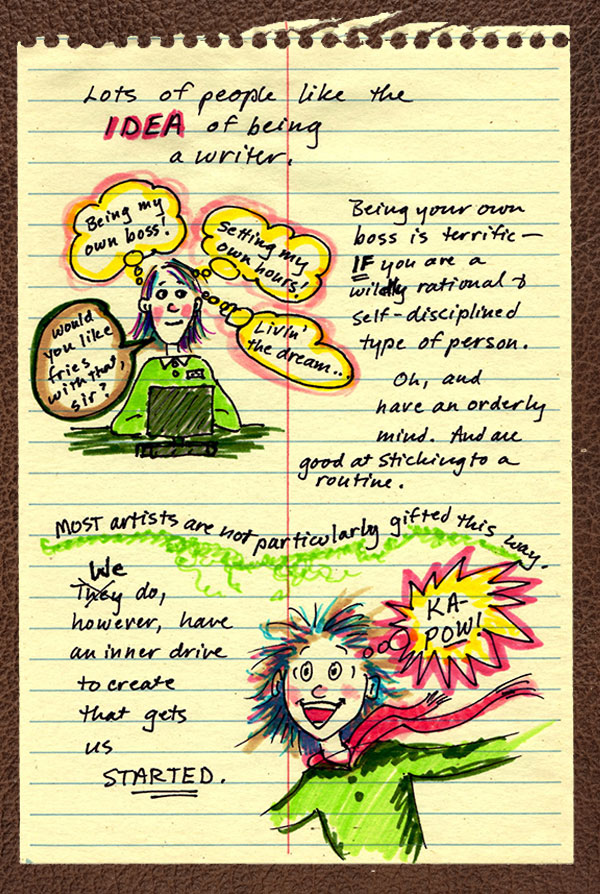 Lots of people like the
IDEA of being
a writer.
Being my
own boss!
Setting my
own hours!
Livin'
the dream...
Would
you like
fries
with that,
sir?
Being your own
boss is terrific—
IF you are a
wildly rational &
self-disciplined
type of person.
Oh, and
have an orderly
mind. And are
good at sticking to a
routine.
MOST artists are not particularly gifted this way.
We
They do,
however, have
an inner drive
to create
that gets
us
STARTED.
KA-
POW!